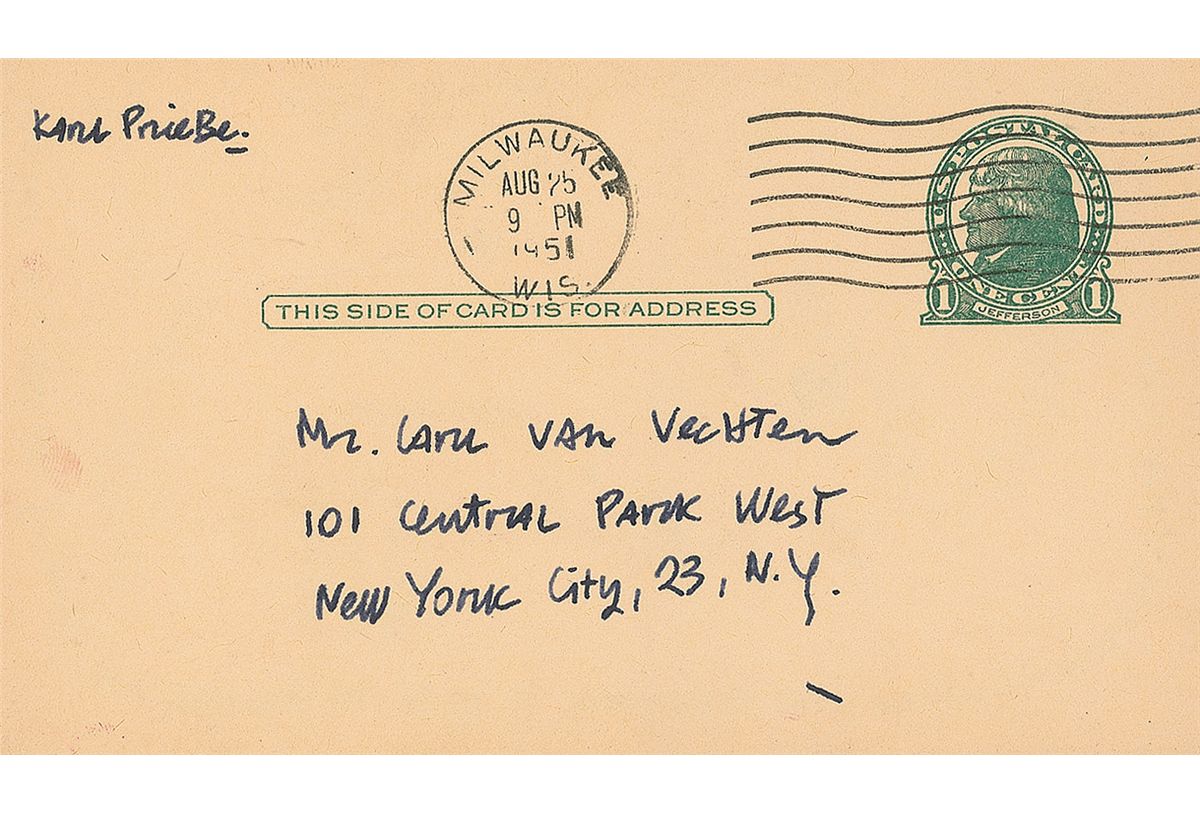 Karl Priebe.
MILWAUKEE
AUG 25
9 PM
1951
WIS.
U.S. POSTAL CARD
ONE CENT
1 JEFFERSON 1
THIS SIDE OF CARD IS FOR ADDRESS
Mr. Carl Van Vechten
101 Central Park West
New York City, 23, N.Y.